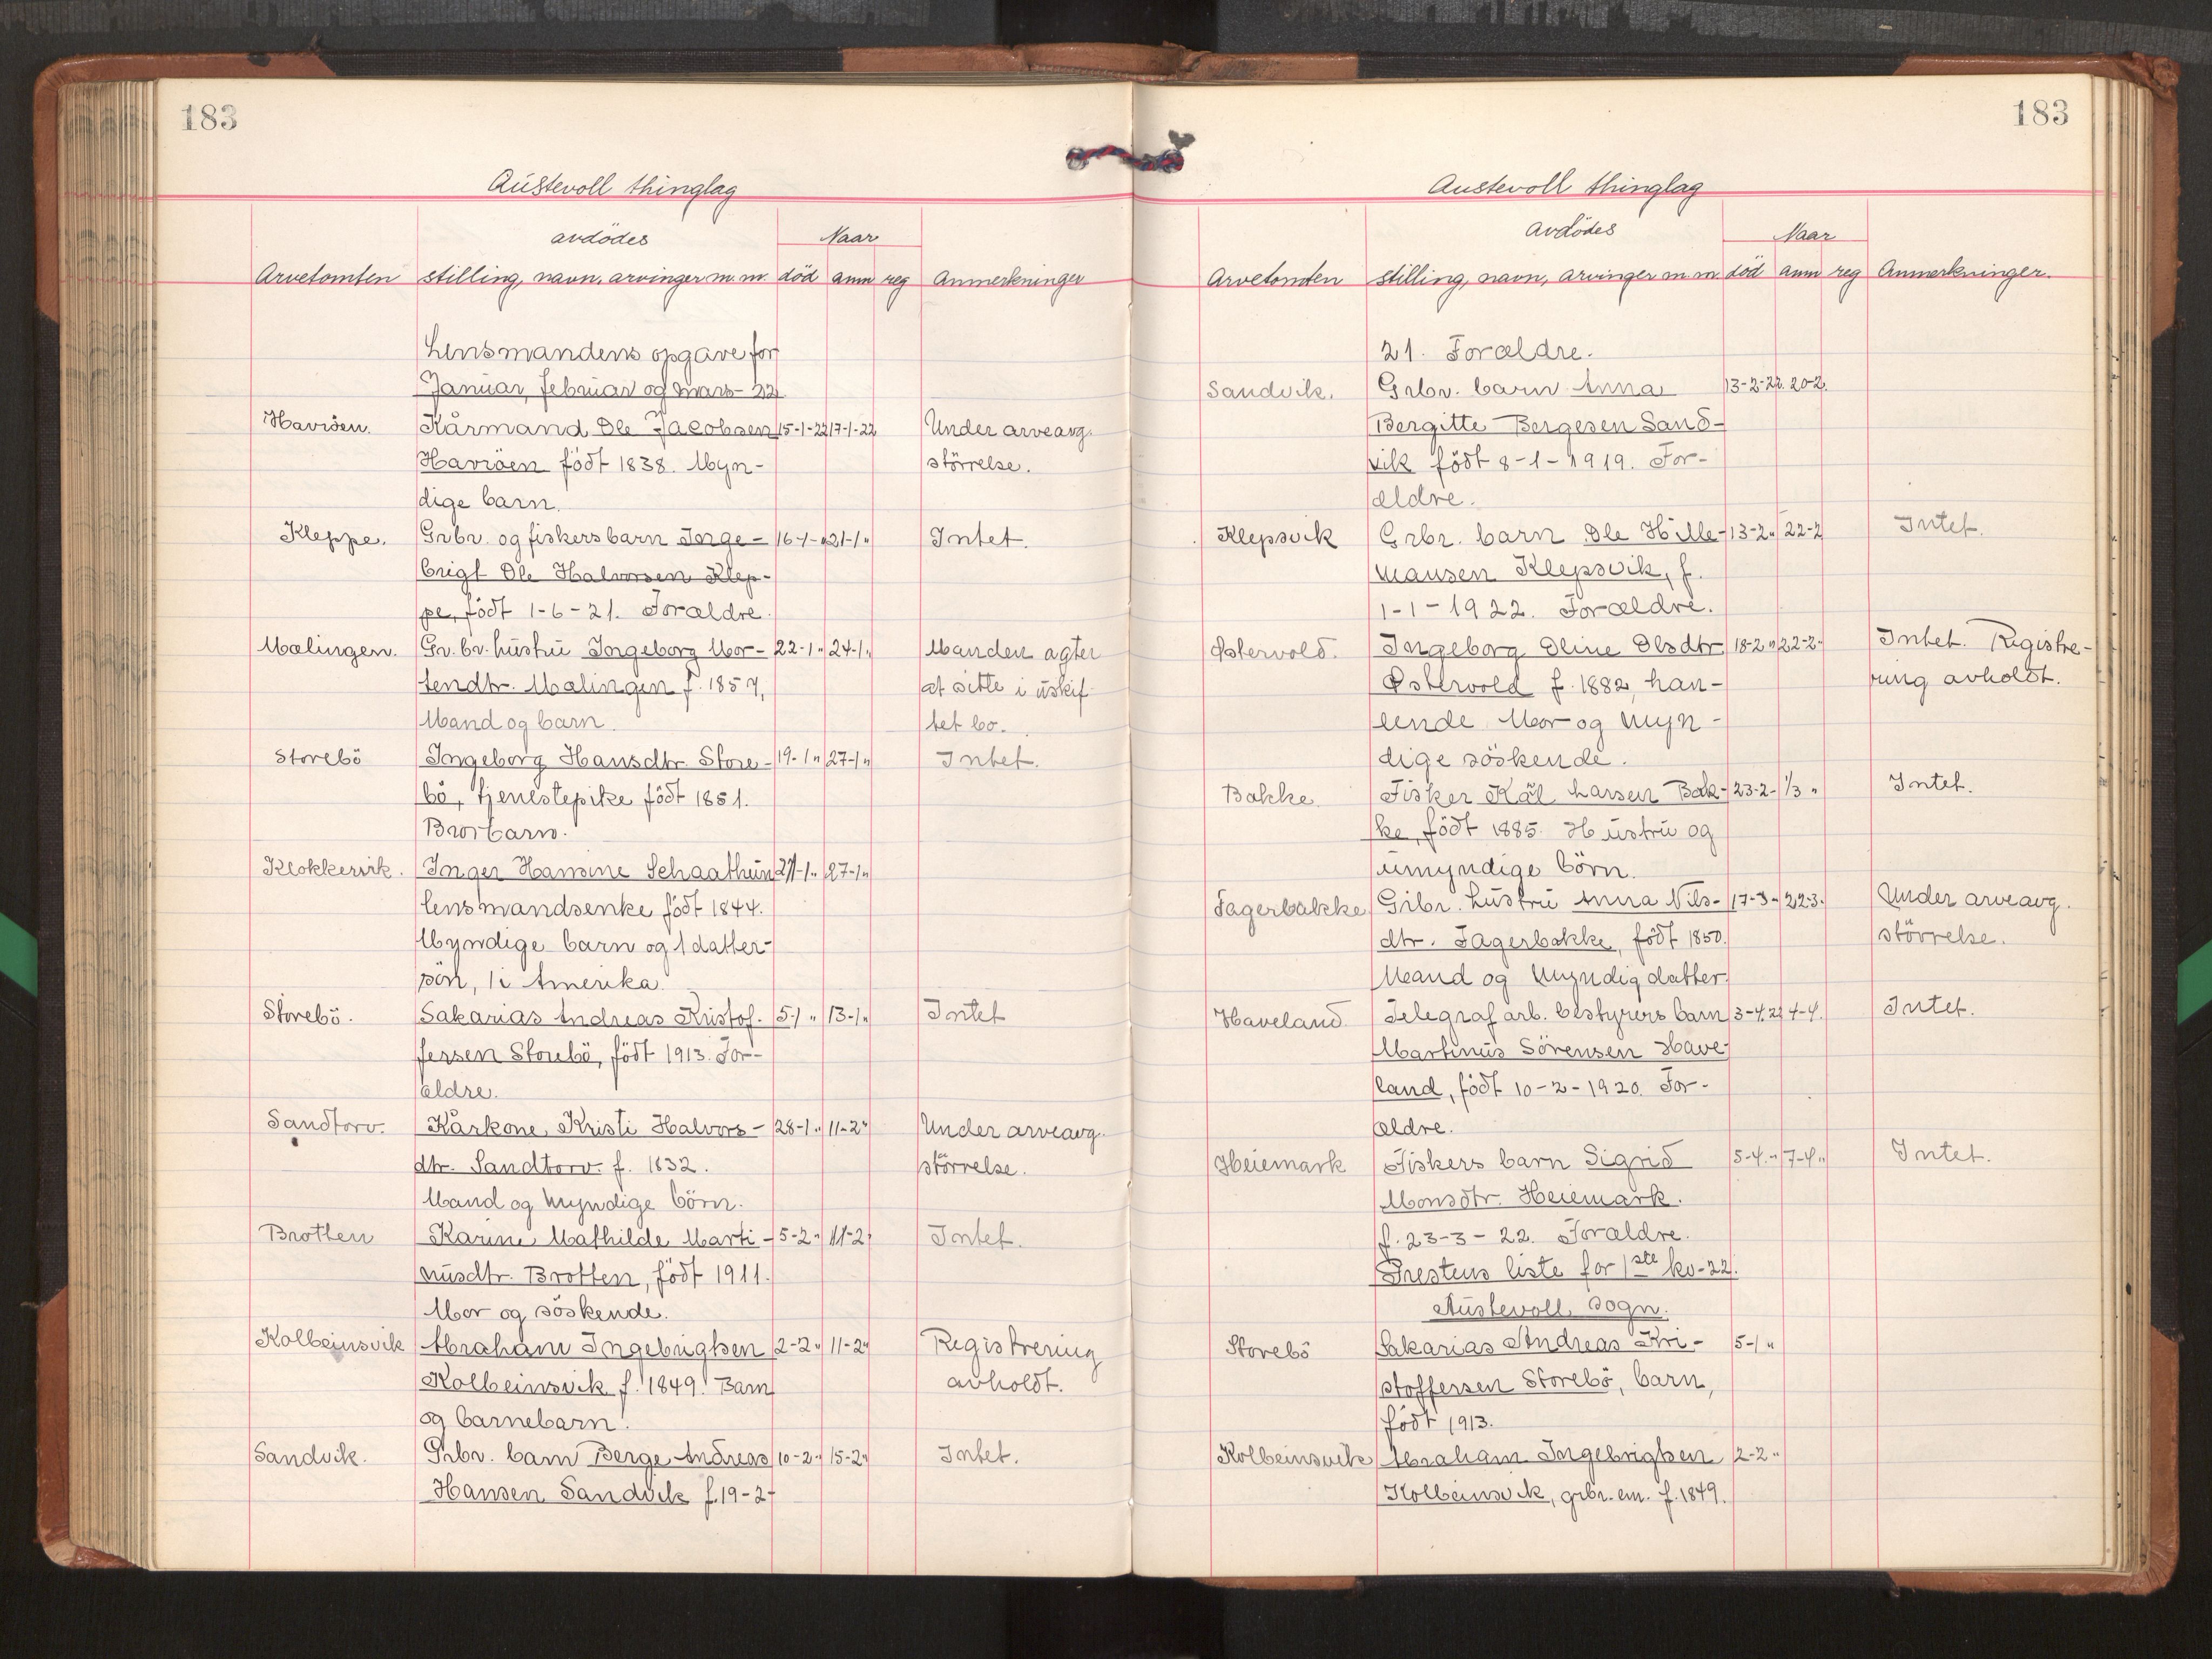 183
Austevoll thinglag
avdödes
Naar
Arvetomten stilling, navn, arvinger m.m. död anm reg Anmerkninger
Lensmandens opgave for
Januar, februar og mars-22.
Haviöen. Kårmand Ole Jacobsen 15-1-22 17-1-22 Under arveavg.
Haviöen födt 1838. Myn- störrelse.
dige barn.
Kleppe. Grbr. og fiskers barn Inge- 16-1-" 21-1" Intet.
brigt Ole Halvorsen Klep-
pe, födt 1-6-21. Forældre.
Mælingen. Gr.br. hustru Ingeborg Mor- 22-1" 24-1" Manden agter
tendtr. Mælingen f. 1857, at sitte i uskif-
Mand og barn. tet bo.
Storebö Ingeborg Hansdtr. Store- 19-1" 27-1" Intet.
bö, tjenestepike födt 1851.
Brorbarn.
Klokkervik. Inger Hansine Schaathun 21-1" 27-1"
lensmandsenke födt 1844.
Myndige barn og 1 datter-
sön, 1 i Amerika.
Storebö. Sakarias Andreas Kristof- 5-1" 13-1" Intet
fersen Storebö, födt 1913. For-
ældre.
Sandtorv. Kårkone Kristi Halvors- 28-1" 11-2" Under arveavg.
dtr. Sandtorv. f. 1832. störrelse.
Mand og myndige börn.
Brotten Karine Mathilde Marti- 5-2" 11-2" Intet.
nusdtr. Brotten, födt 1911.
Mor og söskende.
Kolbeinsvik Abraham Ingebrigtsen 2-2" 11-2" Registrering
Kolbeinsvik f. 1849. Barn avholdt.
og barnebarn.
Sandvik. Grbr. barn Berge Andreas 10-2" 15-2" Intet.
Hansen Sandvik f. 19-2-
183
Austevoll thinglag
Avdödes
Naar
Arvetomten stilling, navn, arvinger m.m. död anm reg Anmerkninger.
21. Forældre.
Sandvik. Grbr. barn Anna 13-2-22. 20-2.
Bergitte Bergesen Sand-
vik födt 8-1-1919. For-
ældre.
Klepsvik Grbr. barn Ole Hille- 13-2" 22-2 Intet.
mansen Klepsvik, f.
1-1-1922. Forældre.
Østervold. Ingeborg Oline Olsdtr. 18-2" 22-2" Intet. Registre-
Østervold f. 1882, han- ring avholdt.
lende. Mor og myn-
dige söskende.
Bakke. Fisker Kål Larsen Bak- 23-2- 1/3 " Intet.
ke, födt 1885. Hustru og
umyndige börn.
Fagerbakke Grbr. hustru Anna Nils- 17-3- 22-3- Under arveavg.
dtr. Fagerbakke, födt 1850. störrelse.
Mand og myndig datter.
Haveland. Telegraf arb. bestyrers barn 3-4-22 4-4. Intet.
Martinus Sörensen Have-
land, födt 10-2-1920. For-
ældre.
Heiemark Fiskers barn Sigrid 5-4-" 7-4" Intet.
Monsdtr. Heiemark.
f. 23-3-22. Forældre.
Prestens liste for 1ste kv-22.
Austevoll sogn.
Storebö Sakarias Andreas Kri- 5-1"
stoffersen Storebö, barn,
födt 1913.
Kolbeinsvik Abraham Ingebrigtsen 2-2"
Kolbeinsvik, grbr. em. f. 1849.